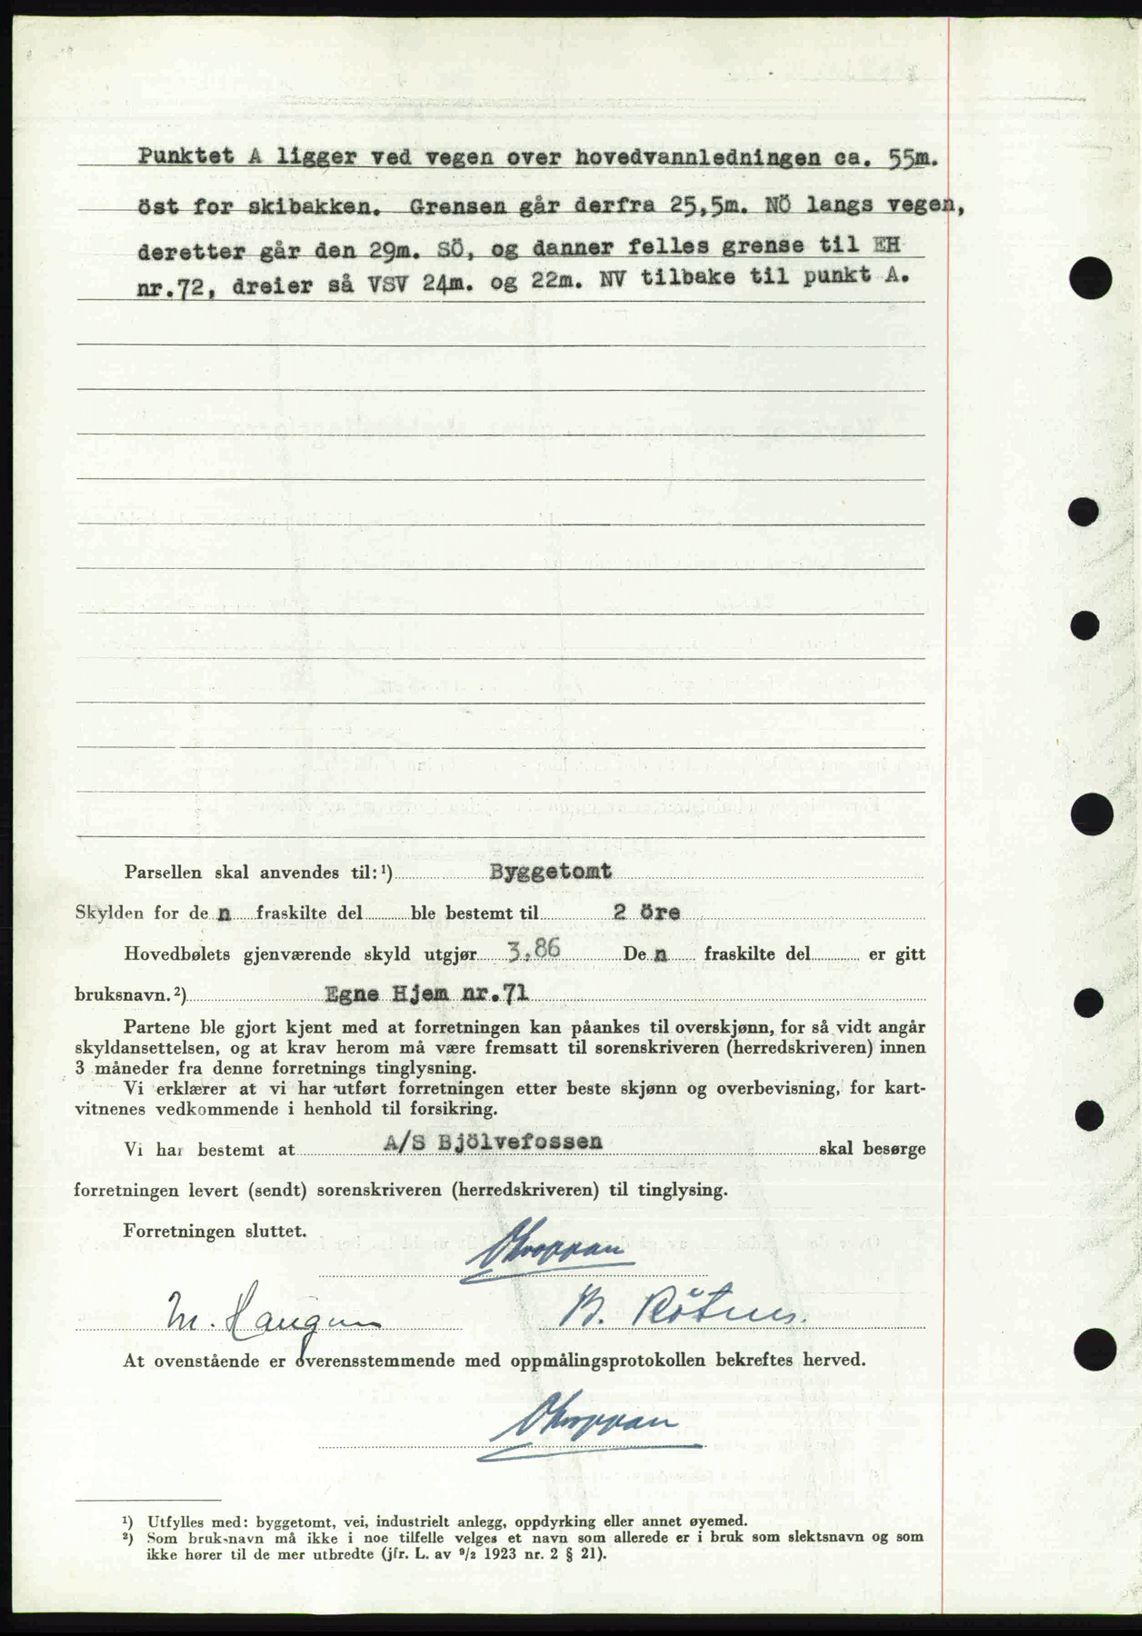 Punktet A ligger ved vegen over hovedvannledningen ca. 55m.
öst for skibakken. Grensen går derfra 25,5m. NÖ langs vegen,
deretter går den 29m. SÖ, og danner felles grense til EH
nr.72, dreier så VSV 24m. og 22m. NV tilbake til punkt A.
Parsellen skal anvendes til:¹) Byggetomt
Skylden for de n fraskilte del ble bestemt til 2 öre
Hovedbølets gjenværende skyld utgjør 3,86 De n fraskilte del er gitt
bruksnavn.²) Egne Hjem nr.71
Partene ble gjort kjent med at forretningen kan påankes til overskjønn, for så vidt angår
skyldansettelsen, og at krav herom må være fremsatt til sorenskriveren (herredskriveren) innen
3 måneder fra denne forretnings tinglysning.
Vi erklærer at vi har utført forretningen etter beste skjønn og overbevisning, for kart-
vitnenes vedkommende i henhold til forsikring.
Vi har bestemt at A/S Bjölvefossen skal besørge
forretningen levert (sendt) sorenskriveren (herredskriveren) til tinglysing.
Forretningen sluttet.
M. Haugen B.
At ovenstående er overensstemmende med oppmålingsprotokollen bekreftes herved.
¹) Utfylles med: byggetomt, vei, industrielt anlegg, oppdyrking eller annet øyemed.
²) Som bruksnavn må ikke i noe tilfelle velges et navn som allerede er i bruk som slektsnavn og som
ikke hører til de mer utbredte (jfr. L. av ⁹/₂ 1923 nr. 2 § 21).